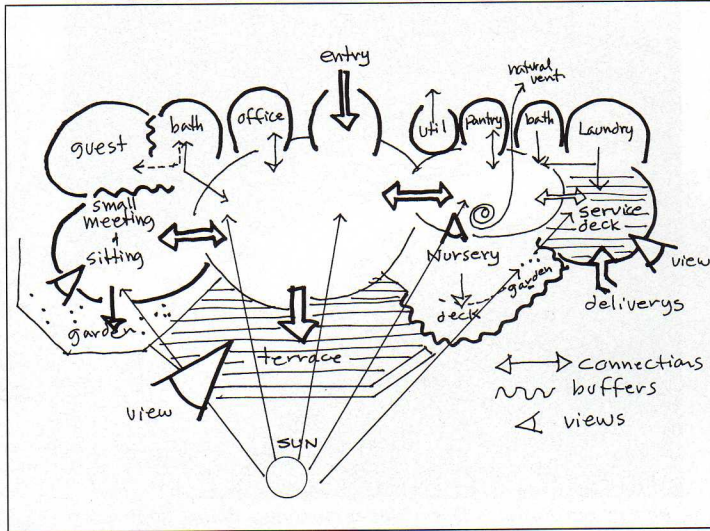 entry
natural
vent
guest
bath
office
util
pantry
bath
Laundry
small
meeting
&
sitting
Nursery
service
deck
view
garden
deck
garden
deliverys
terrace
view
SUN
connections
buffers
views